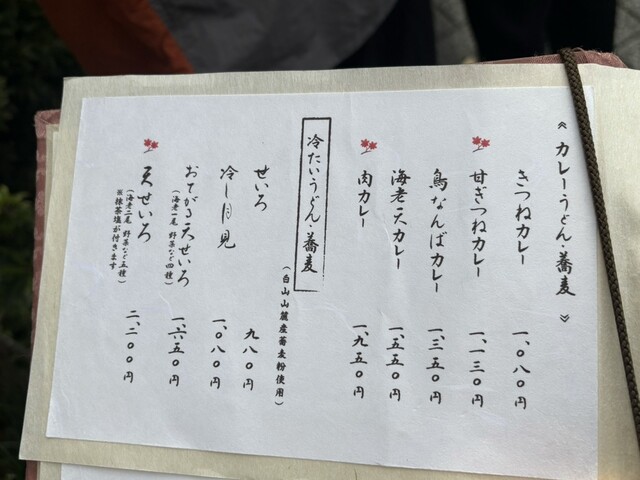 ≪ カレーうどん・蕎麦 ≫
きつねカレー 一、〇八〇円
甘ぎつねカレー 一、一三〇円
鳥なんばカレー 一、三五〇円
海老天カレー 一、五五〇円
肉カレー 一、九五〇円
冷たいうどん・蕎麦
(白山山麓産蕎麦粉使用)
せいろ 九八〇円
冷し月見 一、〇八〇円
おてがる天せいろ 一、六五〇円
(海老一尾 野菜など四種)
天せいろ 二、二〇〇円
(海老二尾 野菜など五種)
※抹茶塩が付きます